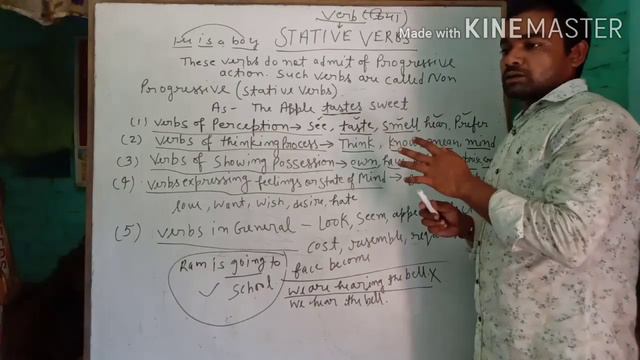 Verb (क्रिया)
Made with KINEMASTER
He is a boy STATIVE VERBS
These verbs do not admit of Progressive
action. Such verbs are called Non
Progressive (Stative verbs)
As- The Apple tastes sweet
(1) verbs of Perception → see, taste, smell, hear, Prefer
(2) verbs of thinking Process → Think, Know, mean, mind
(3) Verbs of Showing Possession → own,
(4) verbs expressing feelings or state of Mind →
love, want, wish, desire, hate
(5) verbs in General - Look, seem,
cost, resemble,
face become
Ram is going to
✓ school
we are hearing the bell X
we hear the bell.